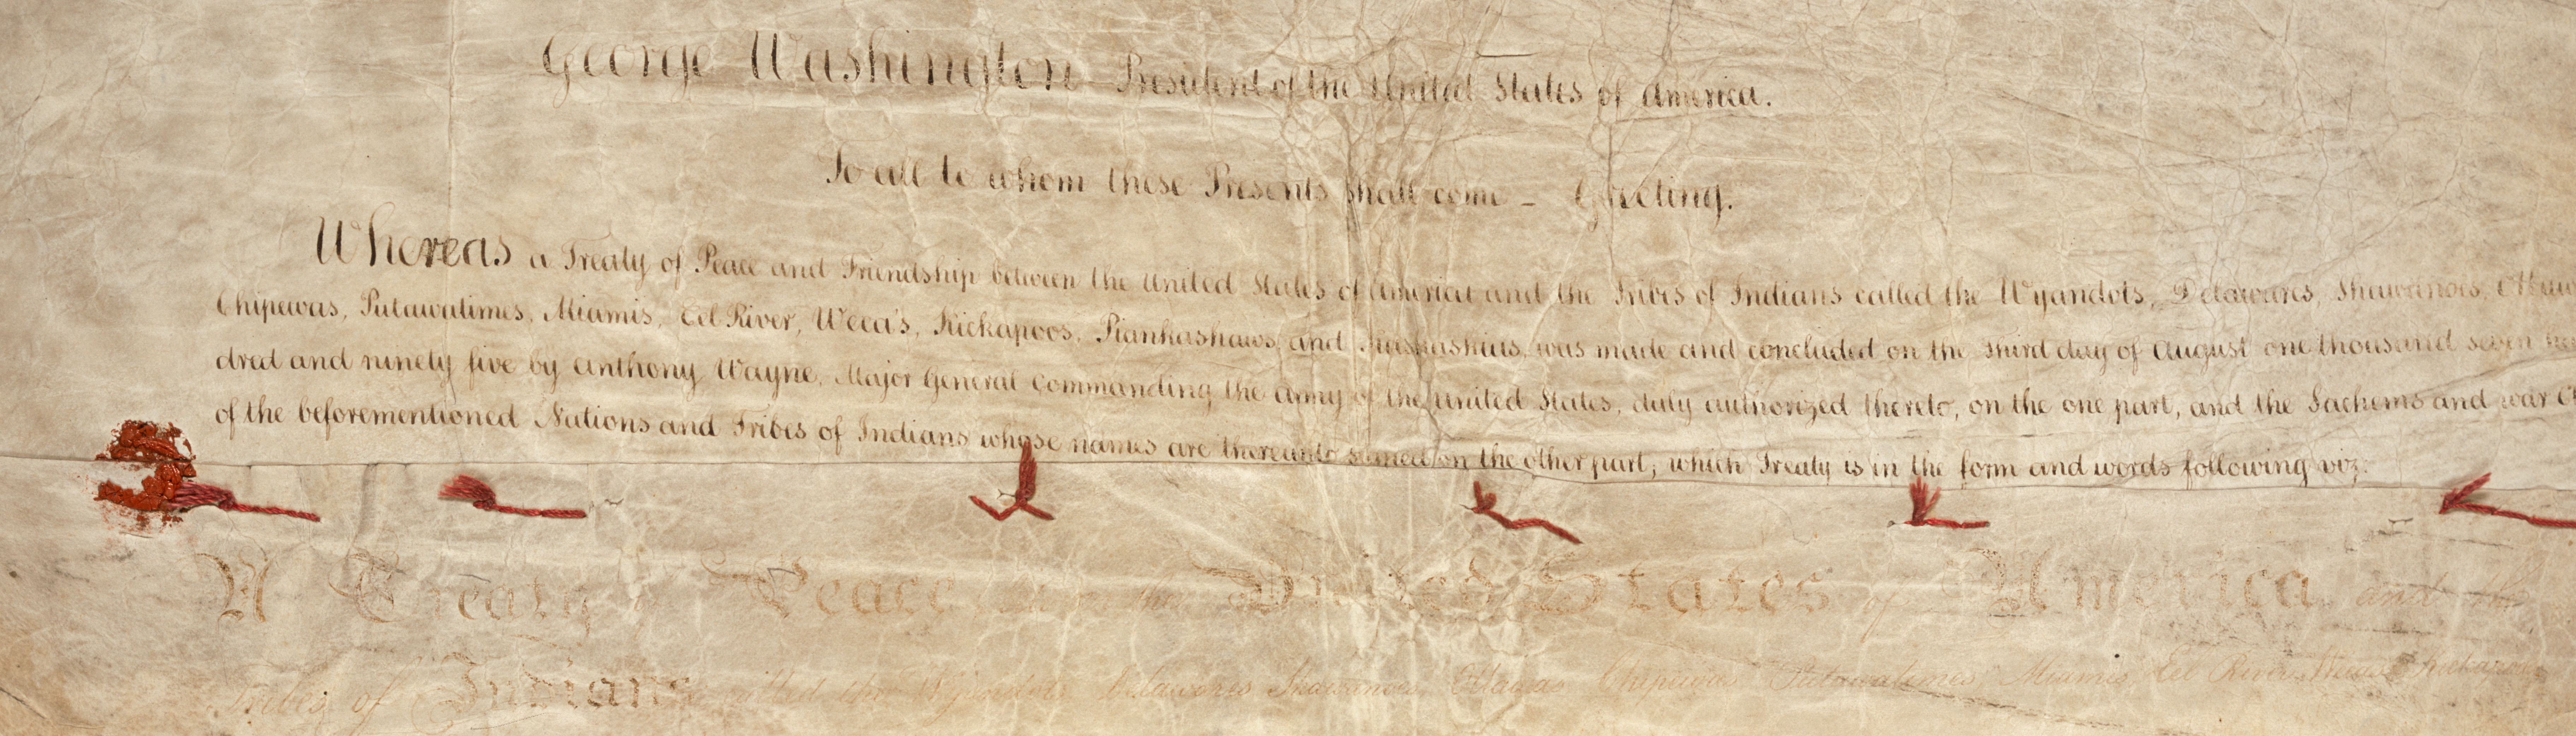 George Washington President of the United States of America.
To all to whom these Presents shall come - Greeting.
Whereas a Treaty of Peace and Friendship between the United States of America and the Tribes of Indians called the Wyandots, Delawares, Shawanoes, Ottaw
Chipewas, Putawatimes, Miamis, Eel River, Weea's, Kickapoos, Piankashaws, and Kaskaskias, was made and concluded on the third day of August one thousand seven hu
dred and ninety five by Anthony Wayne, Major General Commanding the army of the United States, duly authorized thereto, on the one part, and the Sachems and war
of the beforementioned Nations and Tribes of Indians whose names are thereunto signed on the other part; which Treaty is in the form and words following viz:
A Treaty of Peace United States of America and the
Tribes of Indians called the Wyandots Delawares Shawanoes Ottawas Chipewas Putawatimes Miamis, Eel River, Weea's Kickapoos